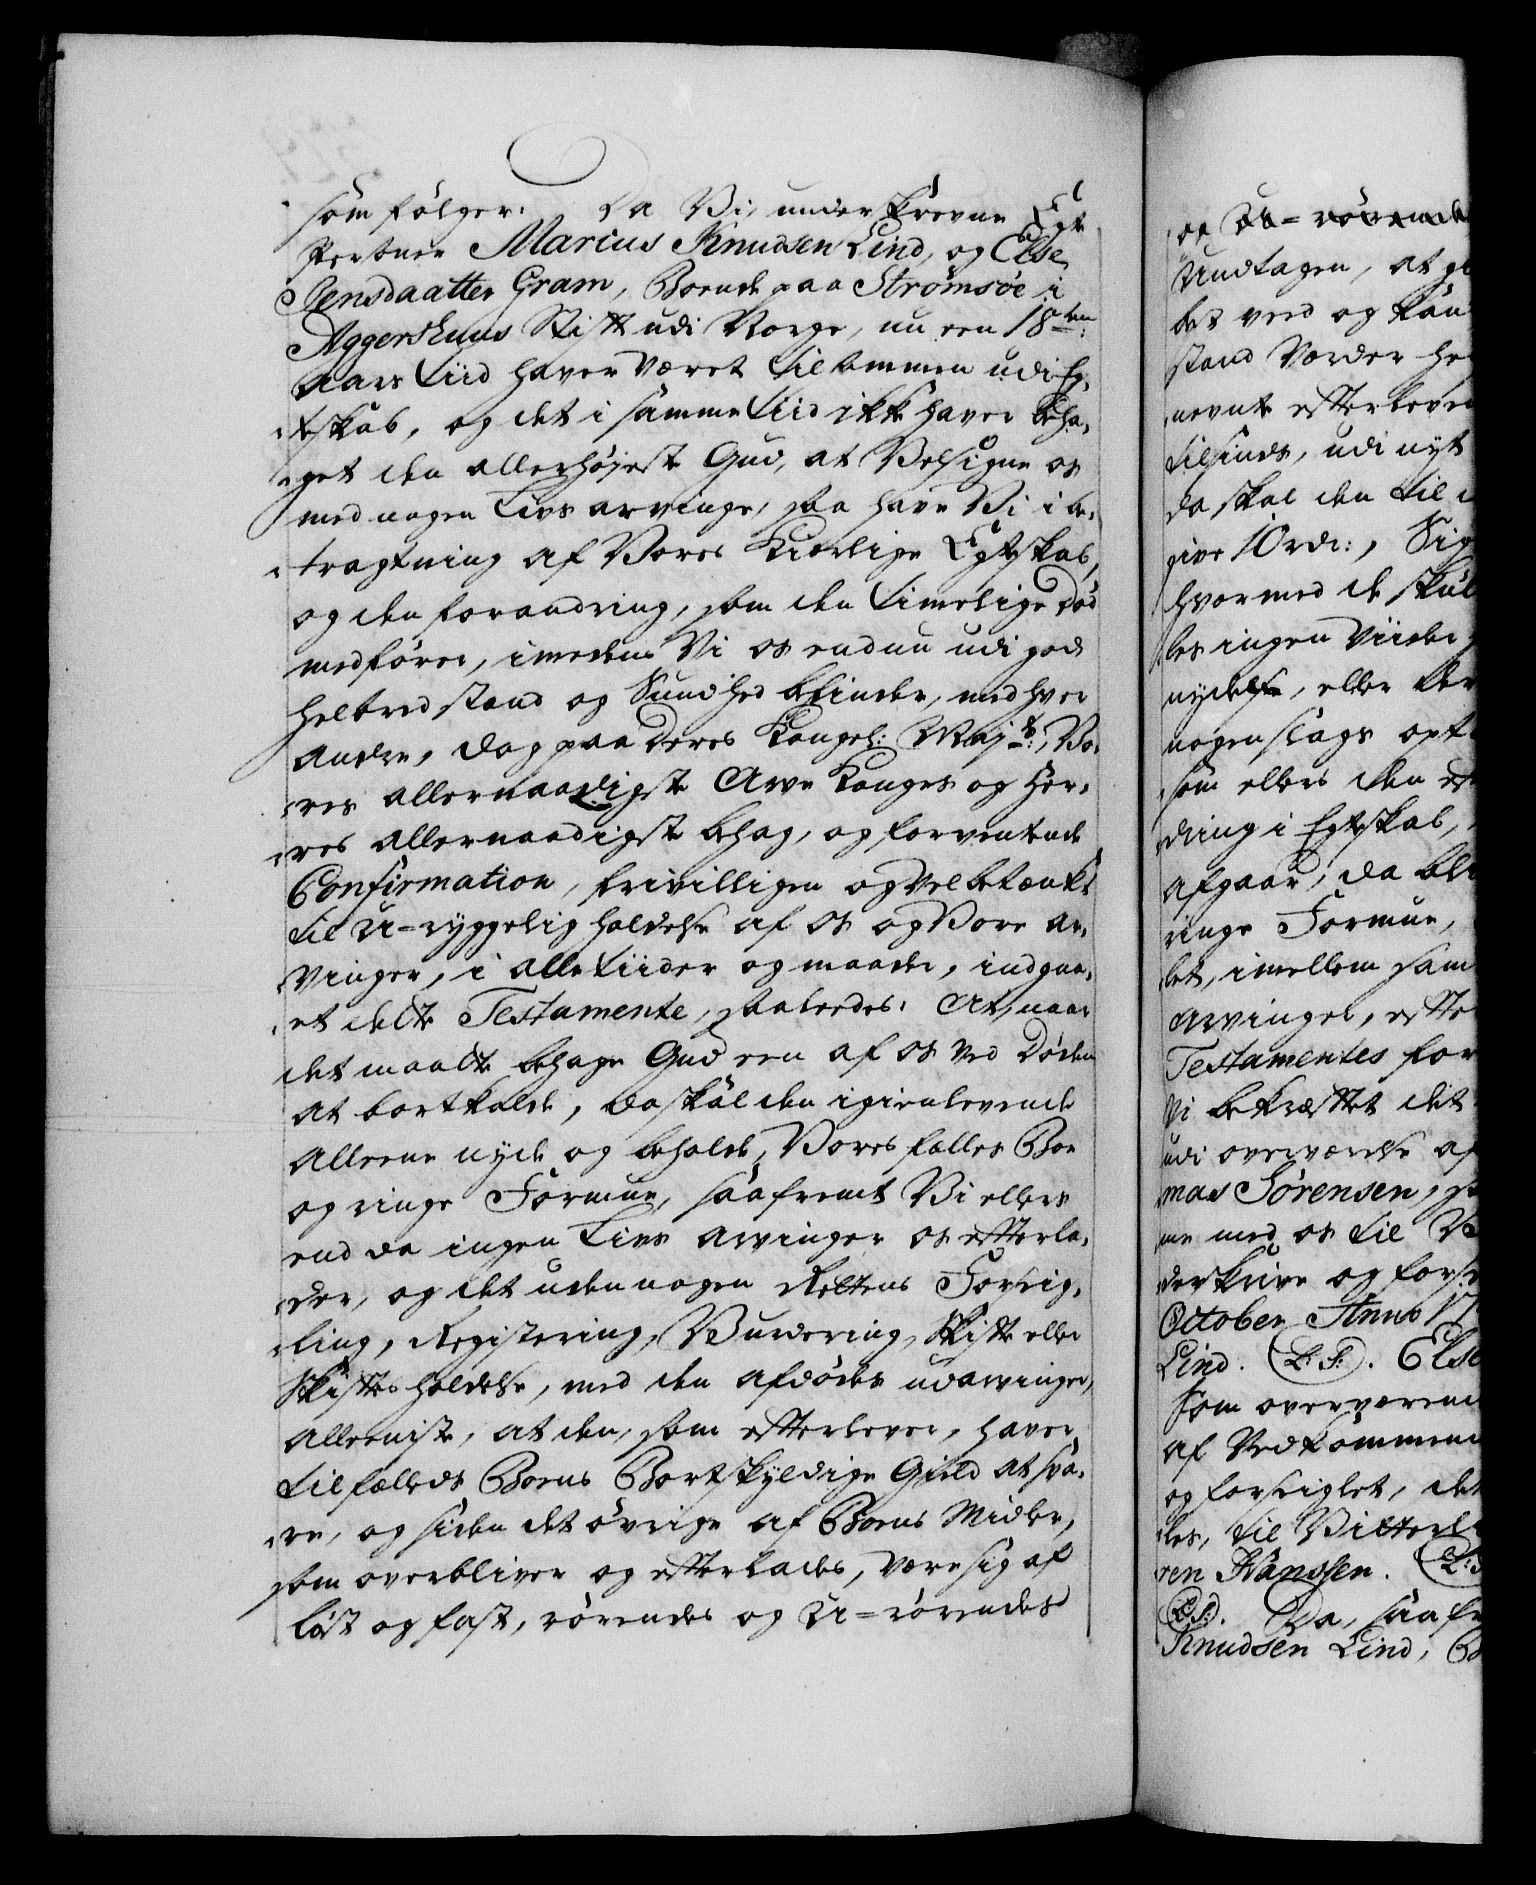 som følger. Da Vi, underskrevne Egte
Personer Marius Knudsen Lind, og Else
Jensdaatter Gram, Boende paa Strømsøe i
Aggershuus Stift udi Norge, nu een 18ten
aars Tiid haver været tilsammen udi Eg,
teskab, og det i samme Tiid ikke haver beha,
get den allerhøjeste Gud, at Velsigne os
med nogen Livs arvinge, saa have Vi i be,
tragtning af Vores Kierlige Egteskab,
og den forandring, som den timelige død
medfører, imedens Vi os endnu udi god
helbred stand og Sundhed befinder, med hver
andre, dog paa Deres Kongel: Mayts:, Vo,
res allernaadigste Arve Konges og Her,
res allernaadigste behag, og forventende
Confirmation, frivilligen og Velbetænkt
til U-ryggelig holdelse af os og Vore Ar,
vinger, i alle tiider og maader, indgaa,
et dette Testamente, saaledes: At, naar
det maatte behage Gud een af os ved Døden
at bortkalde, da skal den igienlevende
Alleene nyde og beholde, Vores fælles Boe
og ringe Formue, saafremt Vi ellers
end da ingen Livs Arvinger os efterla,
der, og det uden nogen Rettens Forseig,
ling, Registering, Vurdering, Skifte eller
Skiftes holdelse, med den afdødes udarvinger,
Alleeniste, at den, som efterlever, haver
tilfælleds Boens Bortskyldige Gield at sva,
re, og siden det øvrige af Boens Midler,
som overbliver og efterlades, være sig af
løst og fast, rørendes og U-rørendes
og U-rørende
Undtagen, at
des ved og
stand Værder
nevnte efterleve
tilsinds, udi nyt
da skal den til
give 10 rdr:,
hvormed de skul
les ingen Viider
nydelse, eller
nogenslags
som ellers den
dring i Egteskab,
afgaar, da bli
ringe Formue,
let, imellem sam
Arvinger, efter
Testamentes for
Vi bekræftet det
udi overværelse af
mas Sørensen,
me med os til
derskrive og forse
October Anno 17
Lind. (L: S:). Else
Som overværend
af Vedkommend
og forseiglet, det
les, til Vitterli
ren Hanssen. (L: S
(L: S:). Da, saafr
Knudsen Lind,